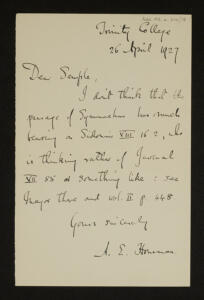 Trinity College
26 April 1927
Dear Semple,
I don't think that the
passage of Symmachus has much
bearing on Sidonius VIII 16 2, who
is thinking rather of Juvenal
VII 55 or something like: see
Mayor there and vol. II p. 448
Yours sincerely
A. E. Housman.